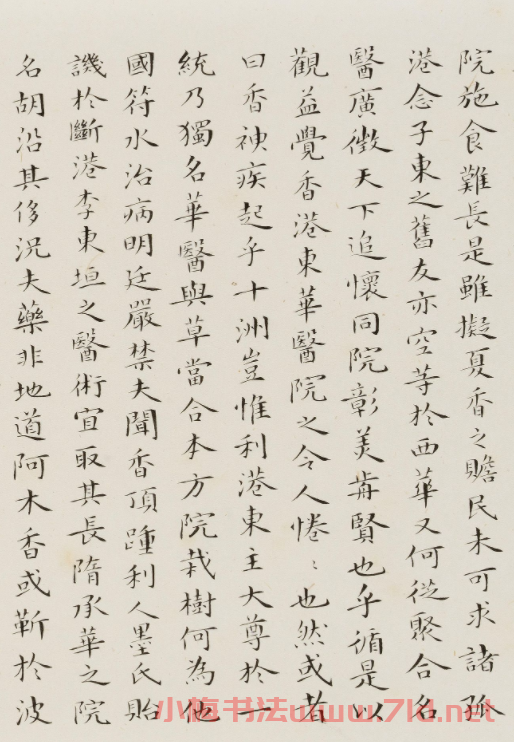 院施食難長是雖擬夏香之贍民未可求諸孤
港念子東之舊友亦空等於西華又何從聚合名
醫廣徵天下追懷同院彰美前賢也乎循是以
觀益覺香港東華醫院之令人惓〻也然或者
曰香神疾起乎十洲豈惟利港東主大尊於一
統乃獨名華醫與草當合本方院栽樹何為他
國符水治病明廷嚴禁夫聞香頂踵利人墨氏貽
譏於斷港李東垣之醫術宜取其長隋承華之院
名胡沿其侈況夫藥非地道阿木香或蘄於波
小梅书法www.7ld.net